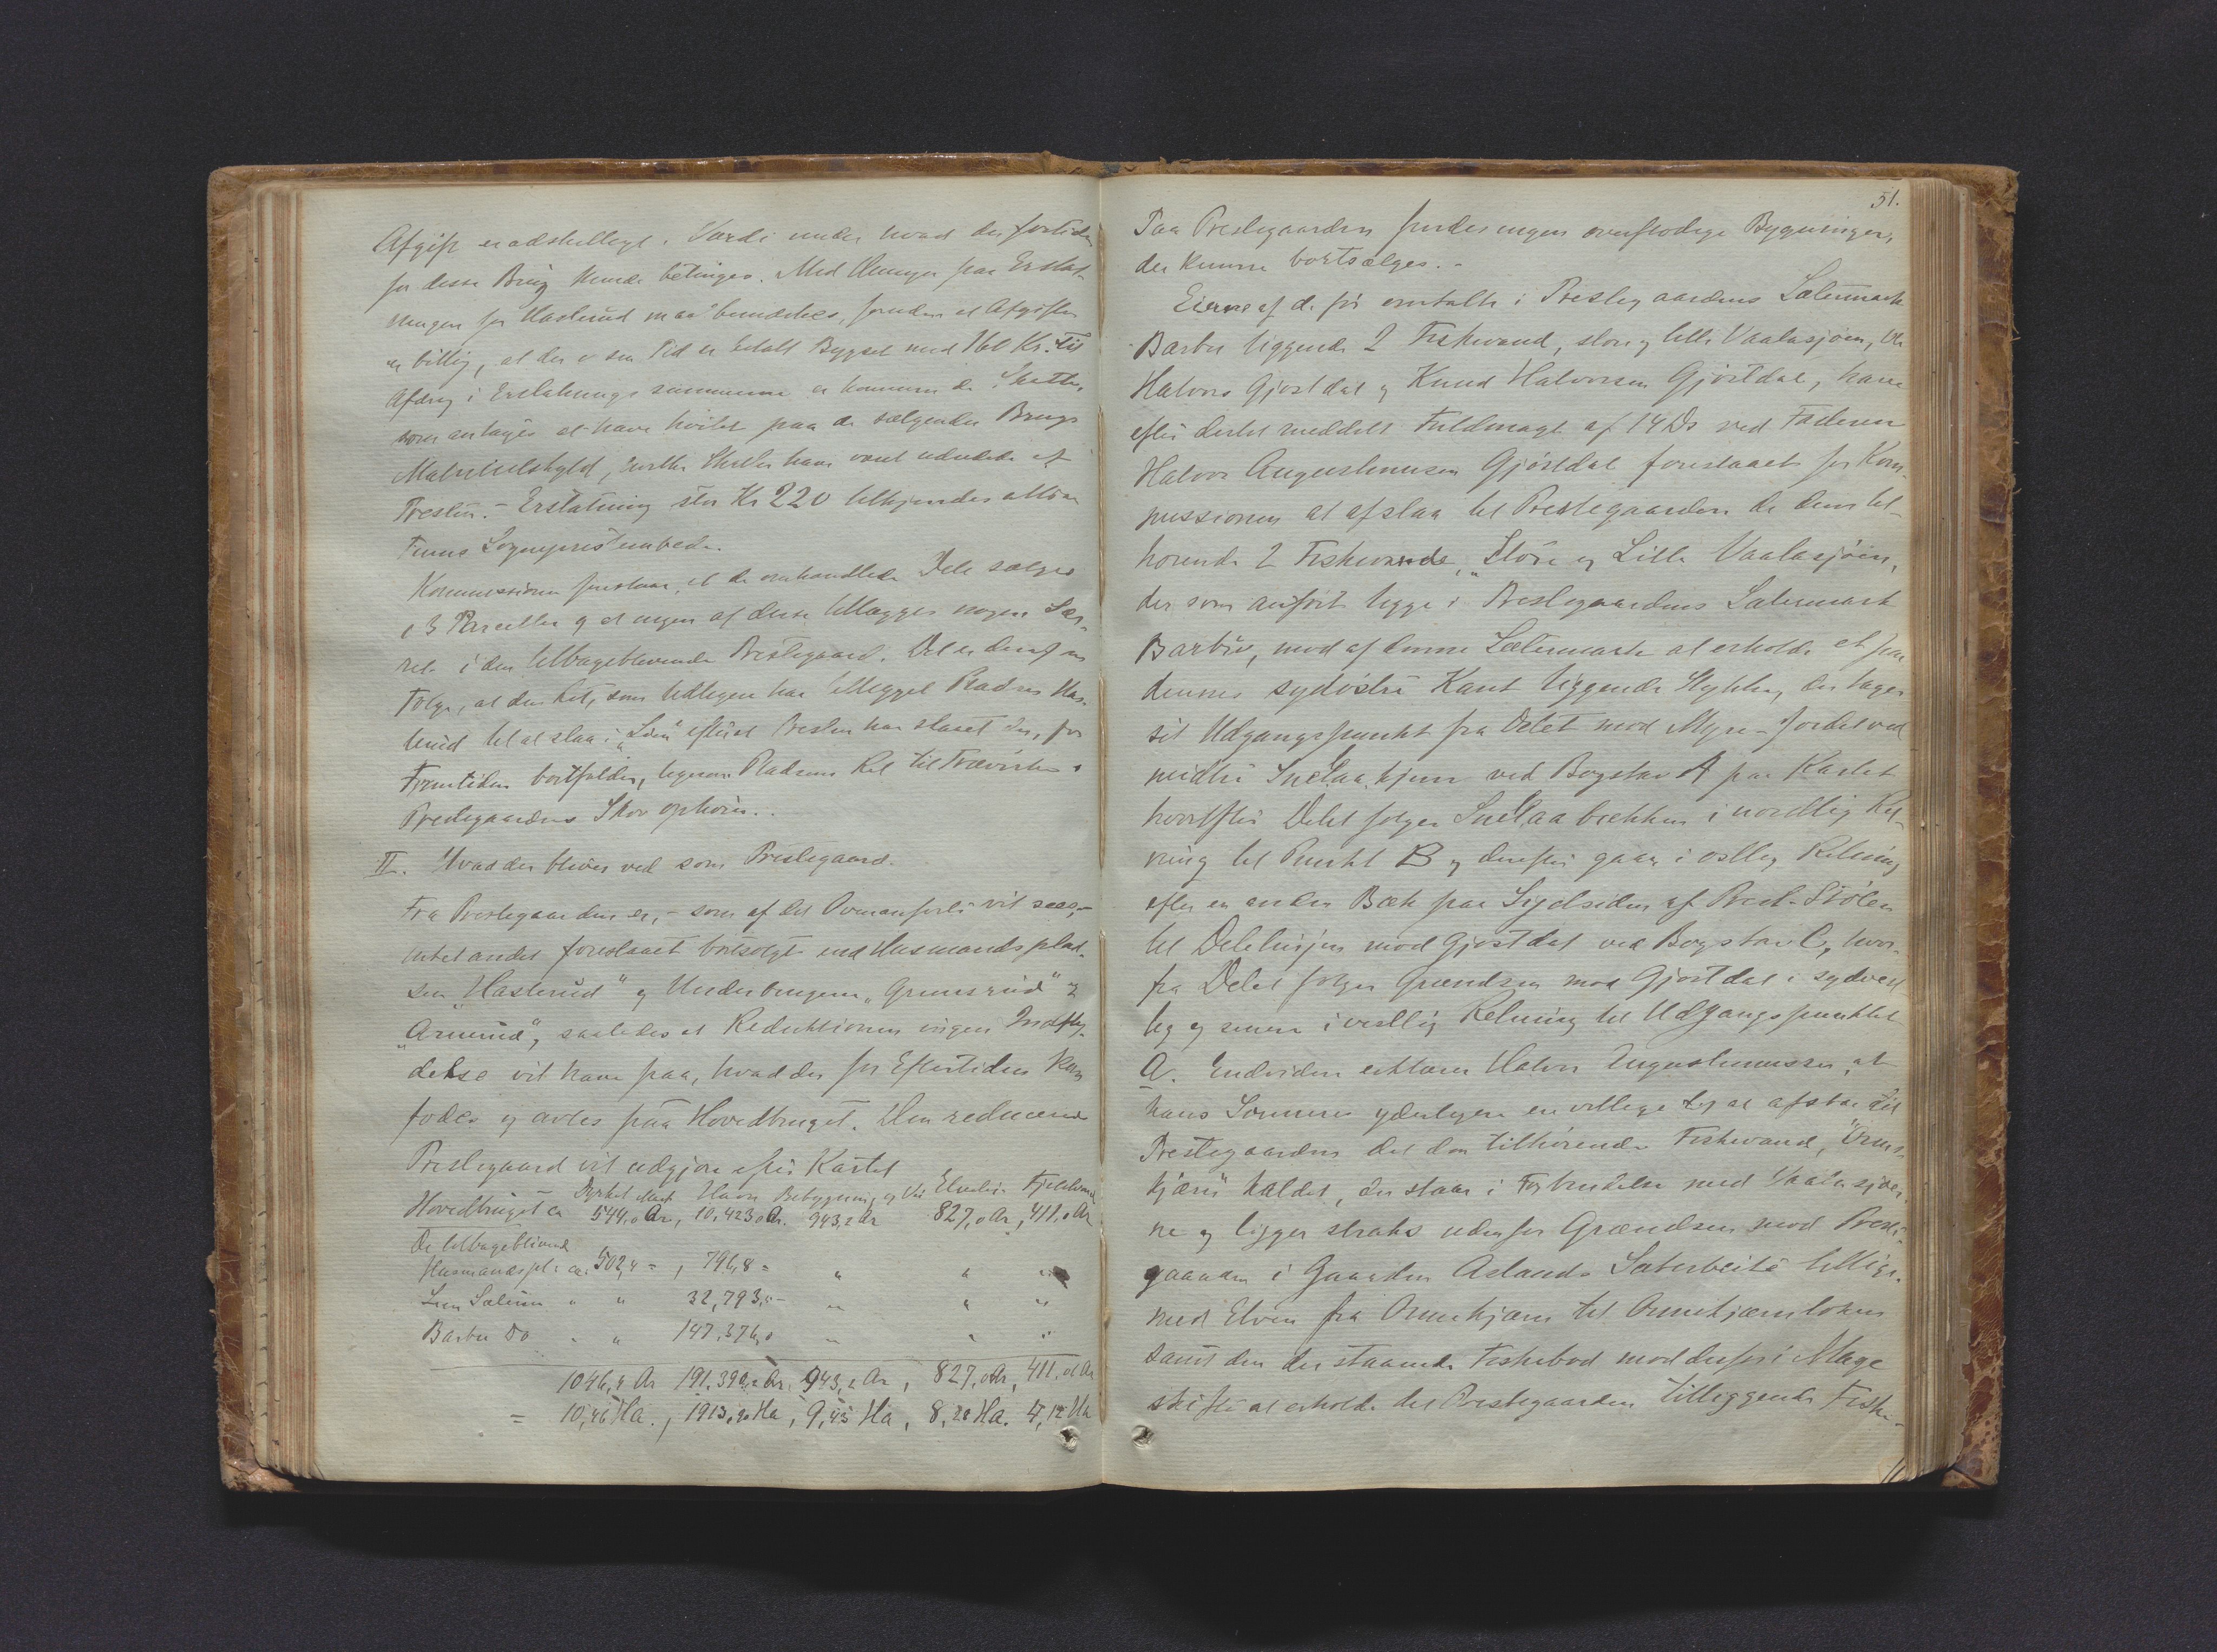 Afgift er adskilligt i Værdi under hvad der fortiden
for disse Brug kunde betinges. Med Hensyn paa Erstat-
ningen for Haslerud maa bemærkes, foruden at Afgiften
er billig, at der i sin Tid er betalt Bygsel med 160 Kr. Til
Afdrag i Erstatningssummerne er kommen de Skatter,
som antages at have hvilet paa de sælgendes Brugs
Matrikelskyld, hvilke Skatter have været udredede af
Presten. - Erstatning stor Kr 220 tilkjendes altsaa
Sogneprestembede.
Kommissionen foreslaar, at de omhandlede Dele sælges
i 3 Parceller og at ingen af disse tillægges nogen Sær-
ret i den tilbageblivende Prestegaard. Det er deraf en
Følge, at den Ret, som har tilligget Pladsen Has-
lerud til at slaa i "Lien" efterat Presten har slaaet der, for
Fremtiden bortfalder, ligesom Pladsens Ret til Trævirke i
Prestegaardens Skov ophører.
II. Hvad der bliver ved som Prestegaard.
Fra Prestegaarden er, - som af det Ovenanførte vil sees, -
intet andet foreslaaet bortsolgt end Husmandsplad-
sen "Haslerud" og Underbrugene "Grunsrud" og
"Arnerud", saaledes at Reduktionen ingen Indfly-
delse vil have paa, hvad der for Eftertiden kan
fødes og avles paa Hovedbruget. Den reducerede
Prestegaard vil udgjøre efter Kartet
Dyrket Mark Havn Bebygning og Vei Elveleie Fjeldvand
Hovedbruget ca 544,0 Ar, 10,423,0 Ar. 943,2 Ar 827,0 Ar, 411,0 Ar
De tilbageblivende
Husmandspl: ca. 502,4 = , 796,8 = " " "
Lien Sæteren " " 32,793,0 - " " "
Barbu Do " " 147.376,0 " " "
1046,4 Ar 191.390,2 Ar. 943,2 Ar, 827,0 Ar, 411,0 Ar
= 10,46 Ha., 1913,90 Ha, 9,43 Ha, 8,28 Ha. 4,12 Ha
51.
Paa Prestegaarden findes ingen overflødige Bygninger,
der kunne bortsælges. -
Eierne af de før omtalte i Prestegaardens Sætermark
Barbu liggende 2 Fiskevand, store og lille Vaalasjøen, Ole
Halvors Gjøstdal og Knud Halvorsen Gjøstdal, have
efter dertil meddelt Fuldmagt af 14 Ds ved Faderen
Halvor Augustinusen Gjøstdal foreslaaet for Kom-
missionen at afstaa til Prestegaarden de dem til-
hørende 2 Fiskevande, "Store og Lille Vaalasjøen,
der som anført ligge i Prestegaardens Sætermark
Barbu, mod af denne Sætermark at erholde et paa
dennes sydøstre Kant liggende Stykke, der tager
sit Udgangspunkt fra Delet mod Myre-Jordet ved
nedre Sneilaakjern ved Bogstav A paa Kartet
hvorefter Delet følger Sneilaa bækken i nordlig Ret-
ning til Punkt B og derefter gaar i østlig Retning
efter en anden Bæk paa Sydsiden af Prest-Stølen
til Delelinjen mod Gjøstdal ved Bogstav C, hvor-
fra Delet følger Grændsen mod Gjøstdal i sydvest-
lig og senere i vestlig Retning til Udgangspunktet
A. Endvidere erklærer Halvor Augustinussen, at
hans Sønner yderligere er villige til at afstaa til
Prestegaarden det dem tilhørende Fiskevand, "Orme-
kjærn" kaldet, der staar i Forbindelse med Vaalasjøer-
ne og ligger straks udenfor Grændsen mod Preste-
gaarden i Gaarden Aslands Sæterbeite tillige-
med Elven fra Ormekjærn til Ormekjærnloken
samt den der staaende Fiskebod mod derfor i Mage-
skifte at erholde det Prestegaarden tilliggende Fiske-